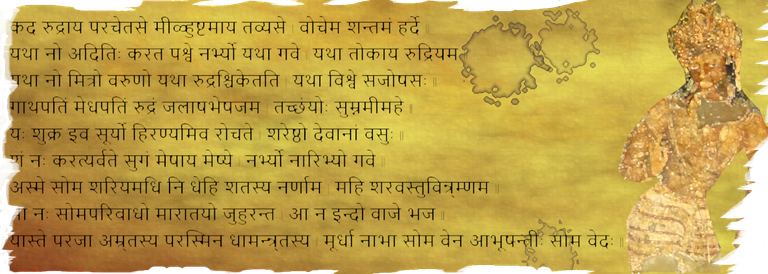 कद रुद्राय परचेतसे मीळ्हुष्टमाय तव्यसे | वोचेम शन्तमं हर्दे ||
यथा नो अदितिः करत पश्वे नर्भ्यो यथा गवे | यथा तोकाय रुद्रियम
यथा नो मित्रो वरुणो यथा रुद्रश्चिकेतति | यथा विश्वे सजोषसः ||
गाथपतिं मेधपतिं रुद्रं जलाषभेषजम | तच्छंयोः सुम्नमीमहे ||
यः शुक्र इव सूर्यो हिरण्यमिव रोचते | शरेष्ठो देवानां वसुः ||
शं नः करत्यर्वते सुगं मेषाय मेष्ये | नर्भ्यो नारिभ्यो गवे ||
अस्मे सोम शरियमधि नि धेहि शतस्य नर्णाम | महि शरवस्तुविन्र्म्णम ||
मा नः सोमपरिबाधो मारातयो जुहुरन्त | आ न इन्दो वाजे भज ||
यास्ते परजा अम्र्तस्य परस्मिन धामन्न्र्तस्य | मूर्धा नाभा सोम वेन आभूषन्तीः सोम वेदः ||